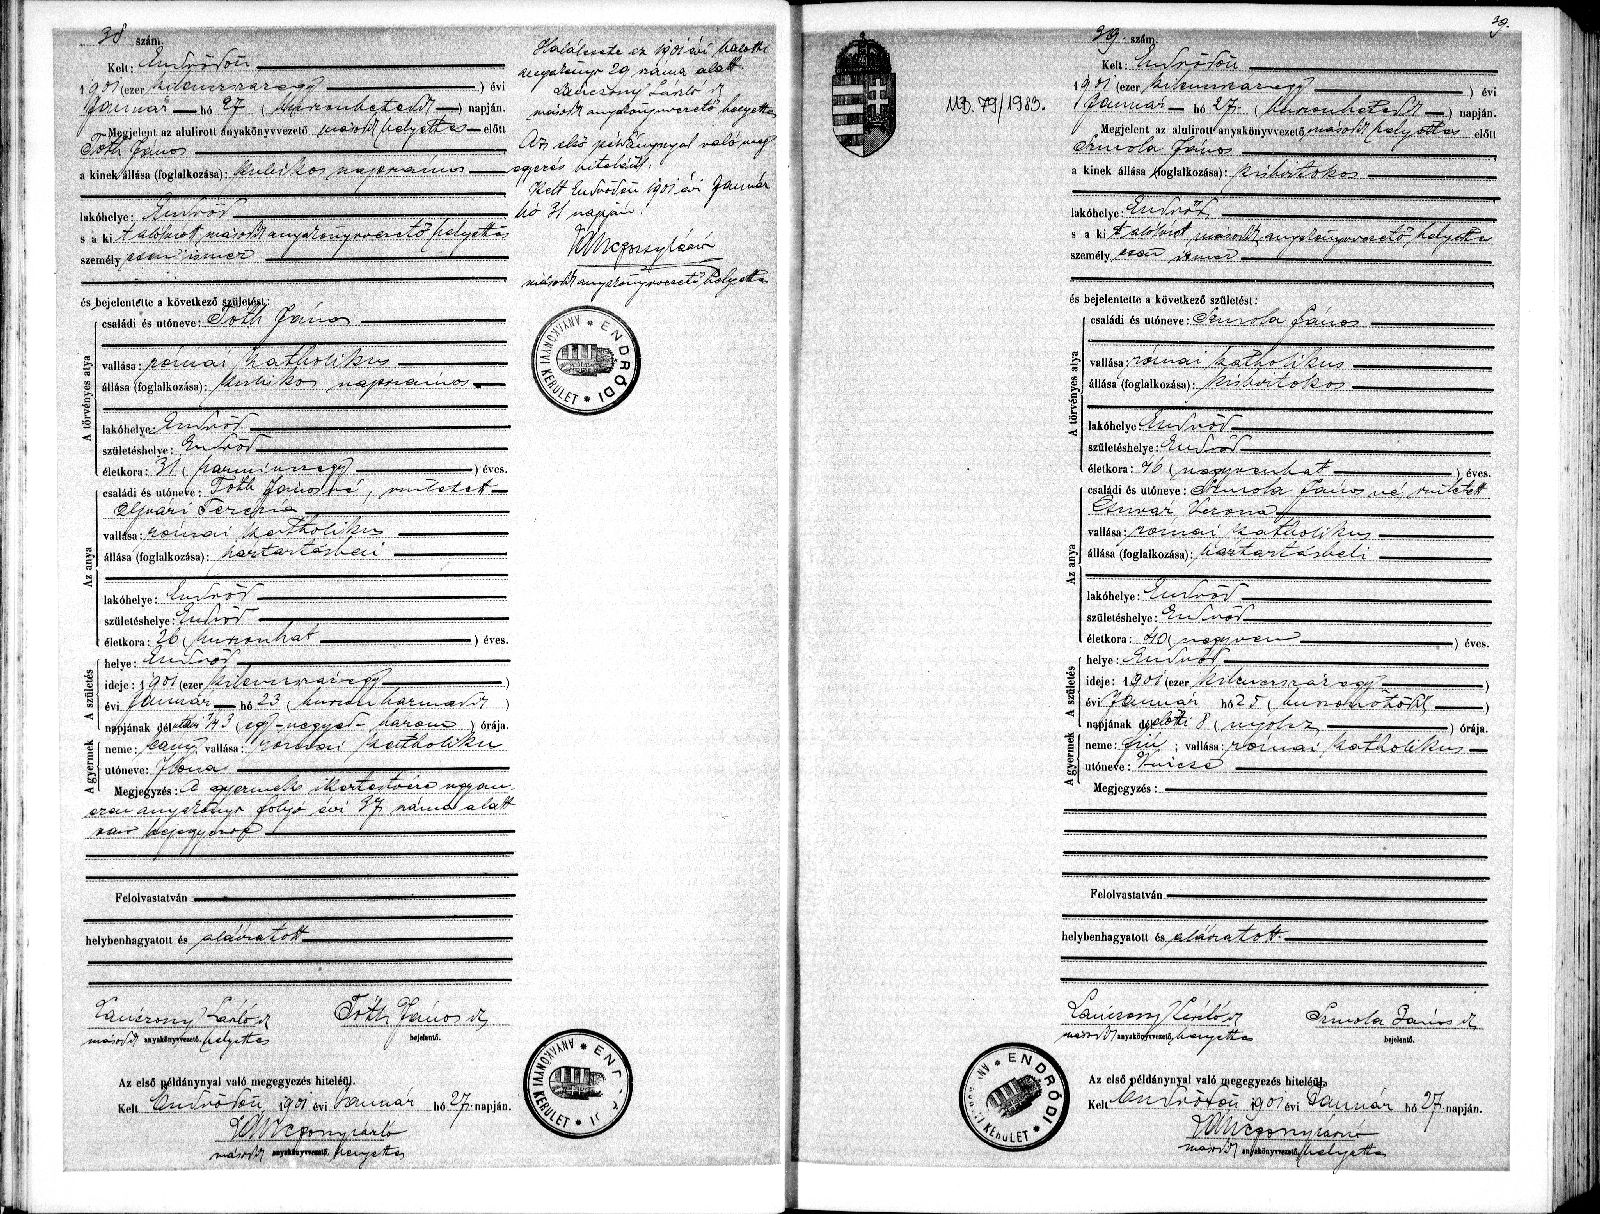 38 szám.
Kelt: Endrődön
1901 (ezer kilenczszázegy) évi
Január hó 27 (huszonhetedik) napján.
Megjelent az alulirott anyakönyvvezető másodh helyettes előtt
Tóth János
a kinek állása (foglalkozása): kubikos napszámos
lakóhelye: Endrőd
s a ki t alólirott másodh anyakönyvvezető helyettes
személyesen ismer
és bejelentette a következő születést:
A törvényes atya
családi és utóneve: Tóth János
vallása: római katholikus
állása (foglalkozása): kubikos napszámos
lakóhelye: Endrőd
születéshelye: Endrőd
életkora: 31 (harminczegy) éves.
Az anya
családi és utóneve: Tóth Jánosné, született
Terézia
vallása: római katholikus
állása (foglalkozása): háztartásbeli
lakóhelye: Endrőd
születéshelye: Endrőd
életkora: 26 (huszonhat) éves.
A születés
helye: Endrőd
ideje: 1901 (ezer kilenczszázegy)
évi Január hó 23 (huszonharmadik)
napjának délután 3/4 3 ( három) órája.
A gyermek
neme: leány vallása: római katholikus
utóneve: Ilona
Megjegyzés: A gyermek ikertestvére ugyan
ezen anyakönyv folyó évi 37 száma alatt
van bejegyezve
Felolvastatván
helybenhagyatott és aláiratott
Lánczony László sk Tóth János sk
másodh anyakönyvvezető, helyettes bejelentő.
Az első példánynyal való megegyezés hiteléül.
Kelt Endrődön 1901 évi Január hó 27 napján.
Lánczony László
másodh anyakönyvvezető, helyettes
Halálesete az 1901 évi halotti
anyakönyv 29 száma alatt
Lánczony László sk
másodh anyakönyvvezető helyettes
Az első példánynyal való meg
egyezés hiteléül.
Kelt Endrődön 1901 évi Január
hó 31 napján.
Lánczony László
másodh anyakönyvvezető helyettes
ENDRŐDI ANYAKÖNYVI KERÜLET
ANYAKÖNYVI KERÜLET
39.
39. szám
Kelt: Endrődön
1901 (ezer kilenczszázegy) évi
Január hó 27. (huszonhetedik) napján.
Megjelent az alulirott anyakönyvvezető másodh helyettes előtt
Szmola János
a kinek állása (foglalkozása): kisbirtokos
lakóhelye: Endrőd
s a ki t alólirott másodh anyakönyvvezető helyettes
személyesen ismer
és bejelentette a következő születést:
A törvényes atya
családi és utóneve: Szmola János
vallása: római katholikus
állása (foglalkozása): kisbirtokos
lakóhelye: Endrőd
születéshelye: Endrőd
életkora: 46 (negyvenhat) éves.
Az anya
családi és utóneve: Szmola Jánosné, született
Verona
vallása: római katholikus
állása (foglalkozása): háztartásbeli
lakóhelye: Endrőd
születéshelye: Endrőd
életkora: 40 (negyven) éves.
A születés
helye: Endrőd
ideje: 1901 (ezer kilenczszázegy)
évi Január hó 25 (huszonötödik)
napjának délelőtti 8 (nyolcz) órája.
A gyermek
neme: fiú; vallása: római katholikus
utóneve: Vincze
Megjegyzés:
Felolvastatván
helybenhagyatott és aláiratott.
Lánczony László sk Szmola János sk
másodh anyakönyvvezető, helyettes bejelentő.
Az első példánynyal való megegyezés hiteléül.
Kelt Endrődön 1901 évi Január hó 27 napján.
Lánczony László
másodh anyakönyvvezető, helyettes
79/1983.
ENDRŐDI KERÜLET